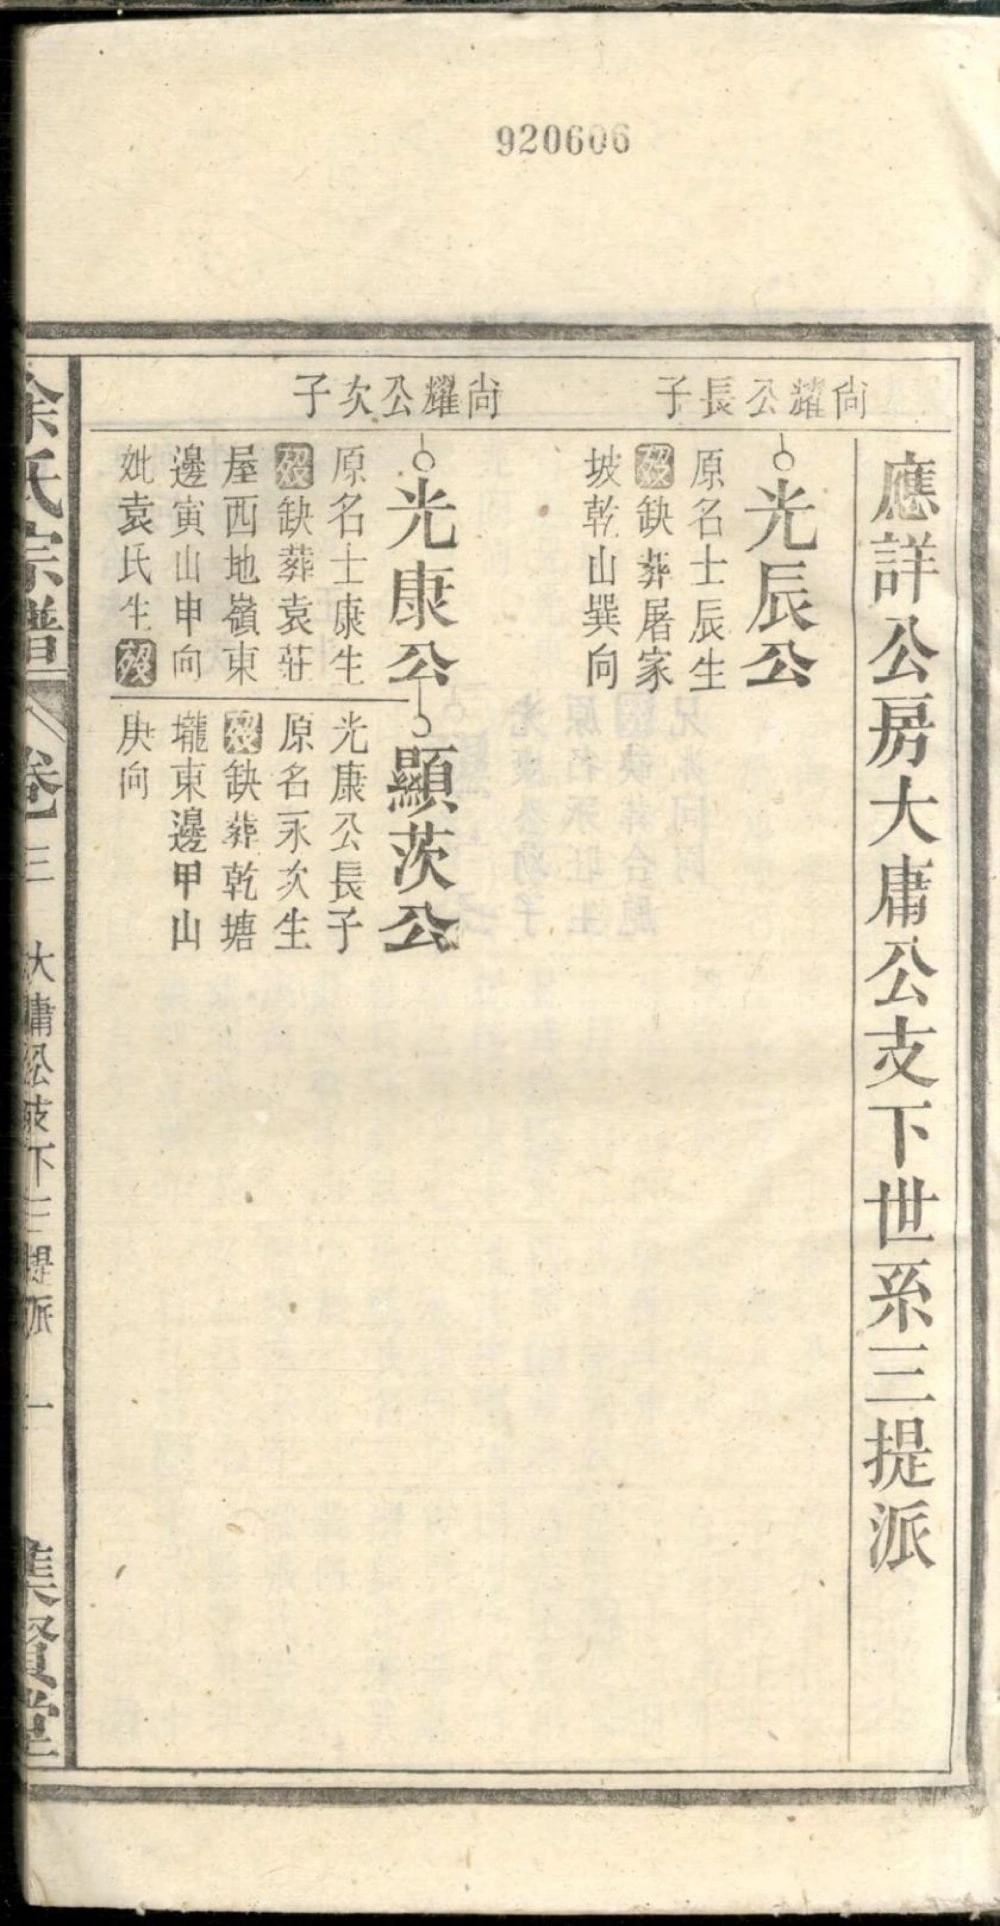 920606
應詳公房大庸公支下世系三提派
尙耀公長子
光辰公
原名士辰生
歿缺葬屠家
坡乾山巽向
尙耀公次子
光康公
原名士康生
歿缺葬袁莊
屋西地嶺東
邊寅山申向
妣袁氏生歿
顯茨公
光康公長子
原名永次生
歿缺葬乾塘
壠東邊甲山
庚向
徐氏宗譜
卷三
大庸公支下三提派
一
集賢堂